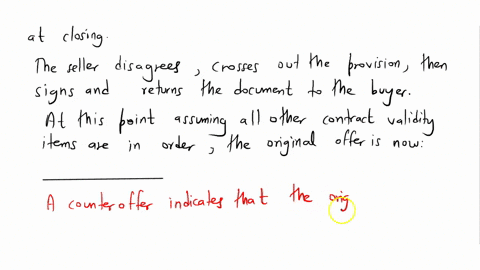 at closing.
The seller disagrees, crosses out the provision, then
signs and returns the document to the buyer.
At this point assuming all other contract validity
items are in order, the original offer is now:
A counteroffer indicates that the orig